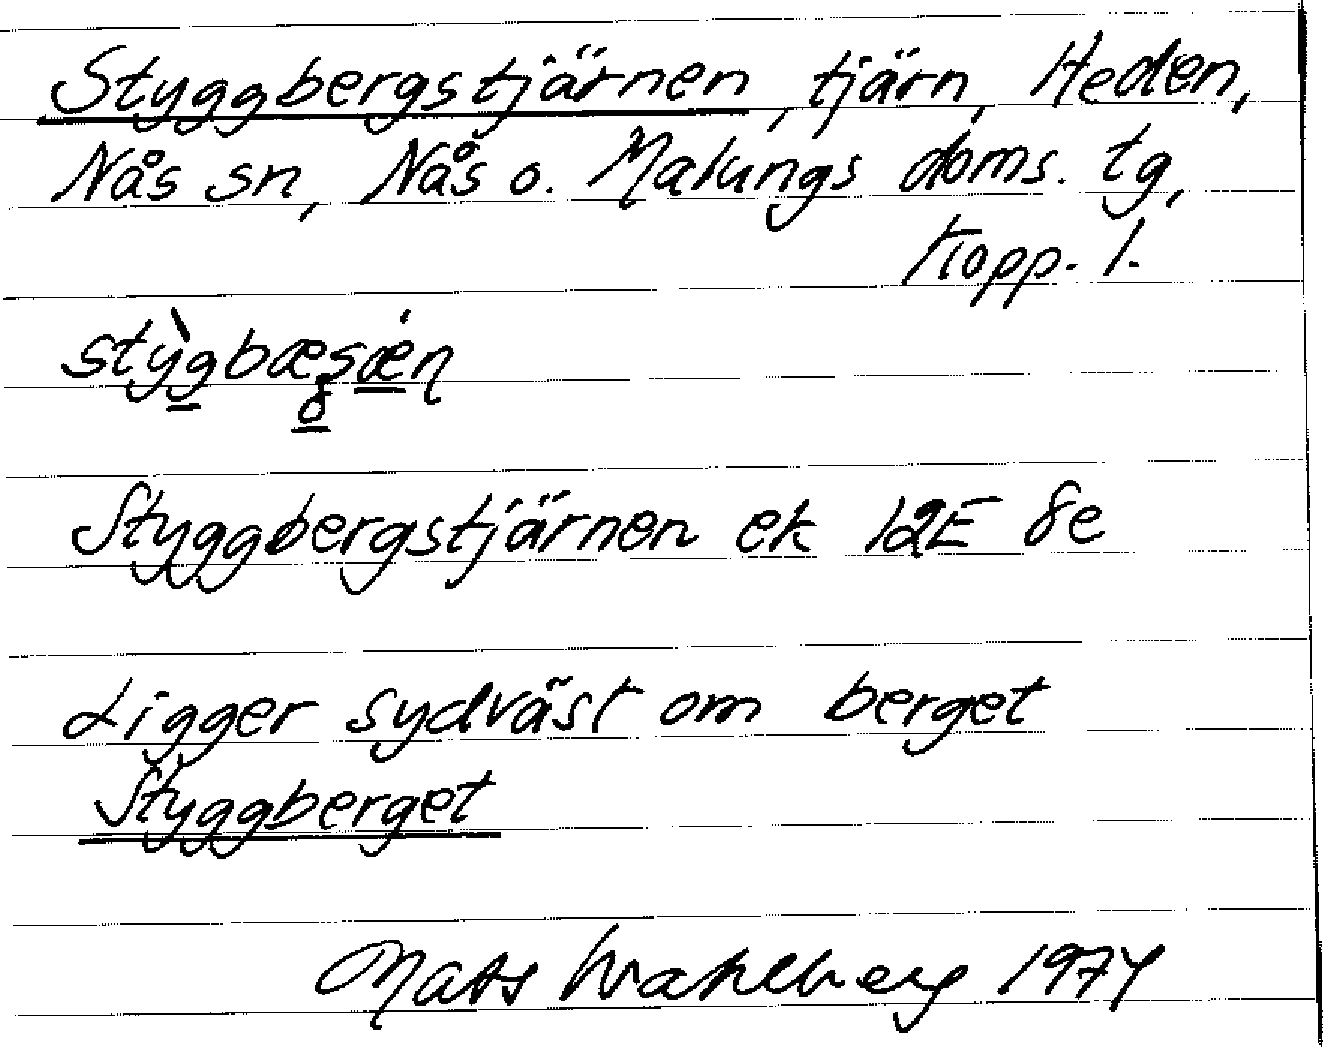 Styggbergstjärnen, tjärn, Heden,
Nås sn, Nås o. Malungs doms. tg,
Kopp. l.
stỳgbæsǽn
Styggbergstjärnen ek 12E 8e
Ligger sydväst om berget
Styggberget
Mats Wahlberg 1974